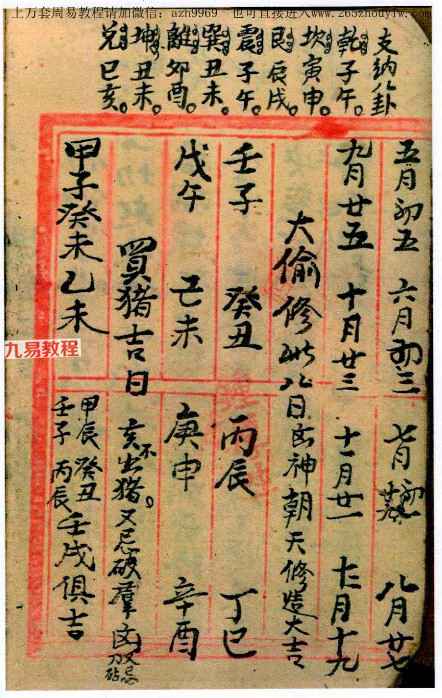 上万套周易教程请加微信：azh9969 也可直接进入www.265zhouyiw.com
支纳八卦
乾子午。
坎寅申。
艮辰戌。
震子午。
巽丑未。
離卯酉。
坤丑未。
兌巳亥。
五月初五 六月初三 七月初一 廿 八月廿七
九月廿五 十月廿三 十一月廿一 十二月十九
大偷修此八日凶神朝天修造大吉
壬子 癸丑 丙辰 丁巳
戊午 己未 庚申 辛酉
買猪吉日 亥不出猪。又忌破羣凶又忌刀砧
甲子癸未乙未 甲辰癸丑
壬子丙辰 壬戌俱吉
九易教程